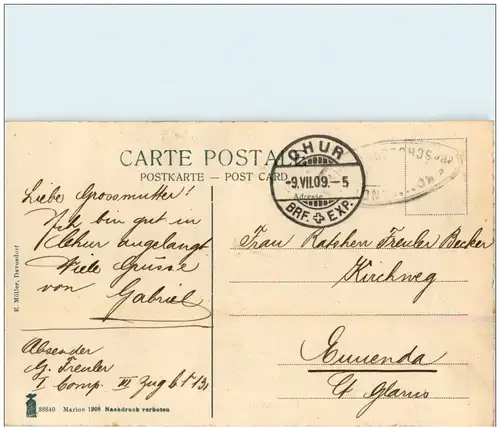 CARTE POSTALE
POSTKARTE — POST CARD
CHUR
-9.VII.09.-5
BRF. EXP.
Adresse
Liebe Grossmutter!
Ich bin gut in
Chur angelangt.
Viele Grüsse
von
Gabriel
Absender
G. Freuler
I Comp. III Zug
Frau Ratsherr Freuler Becker
Kirchweg
Ennenda
Ct Glarus
E. Müller, Davosdorf
38540 Marine 1908 Nachdruck verboten